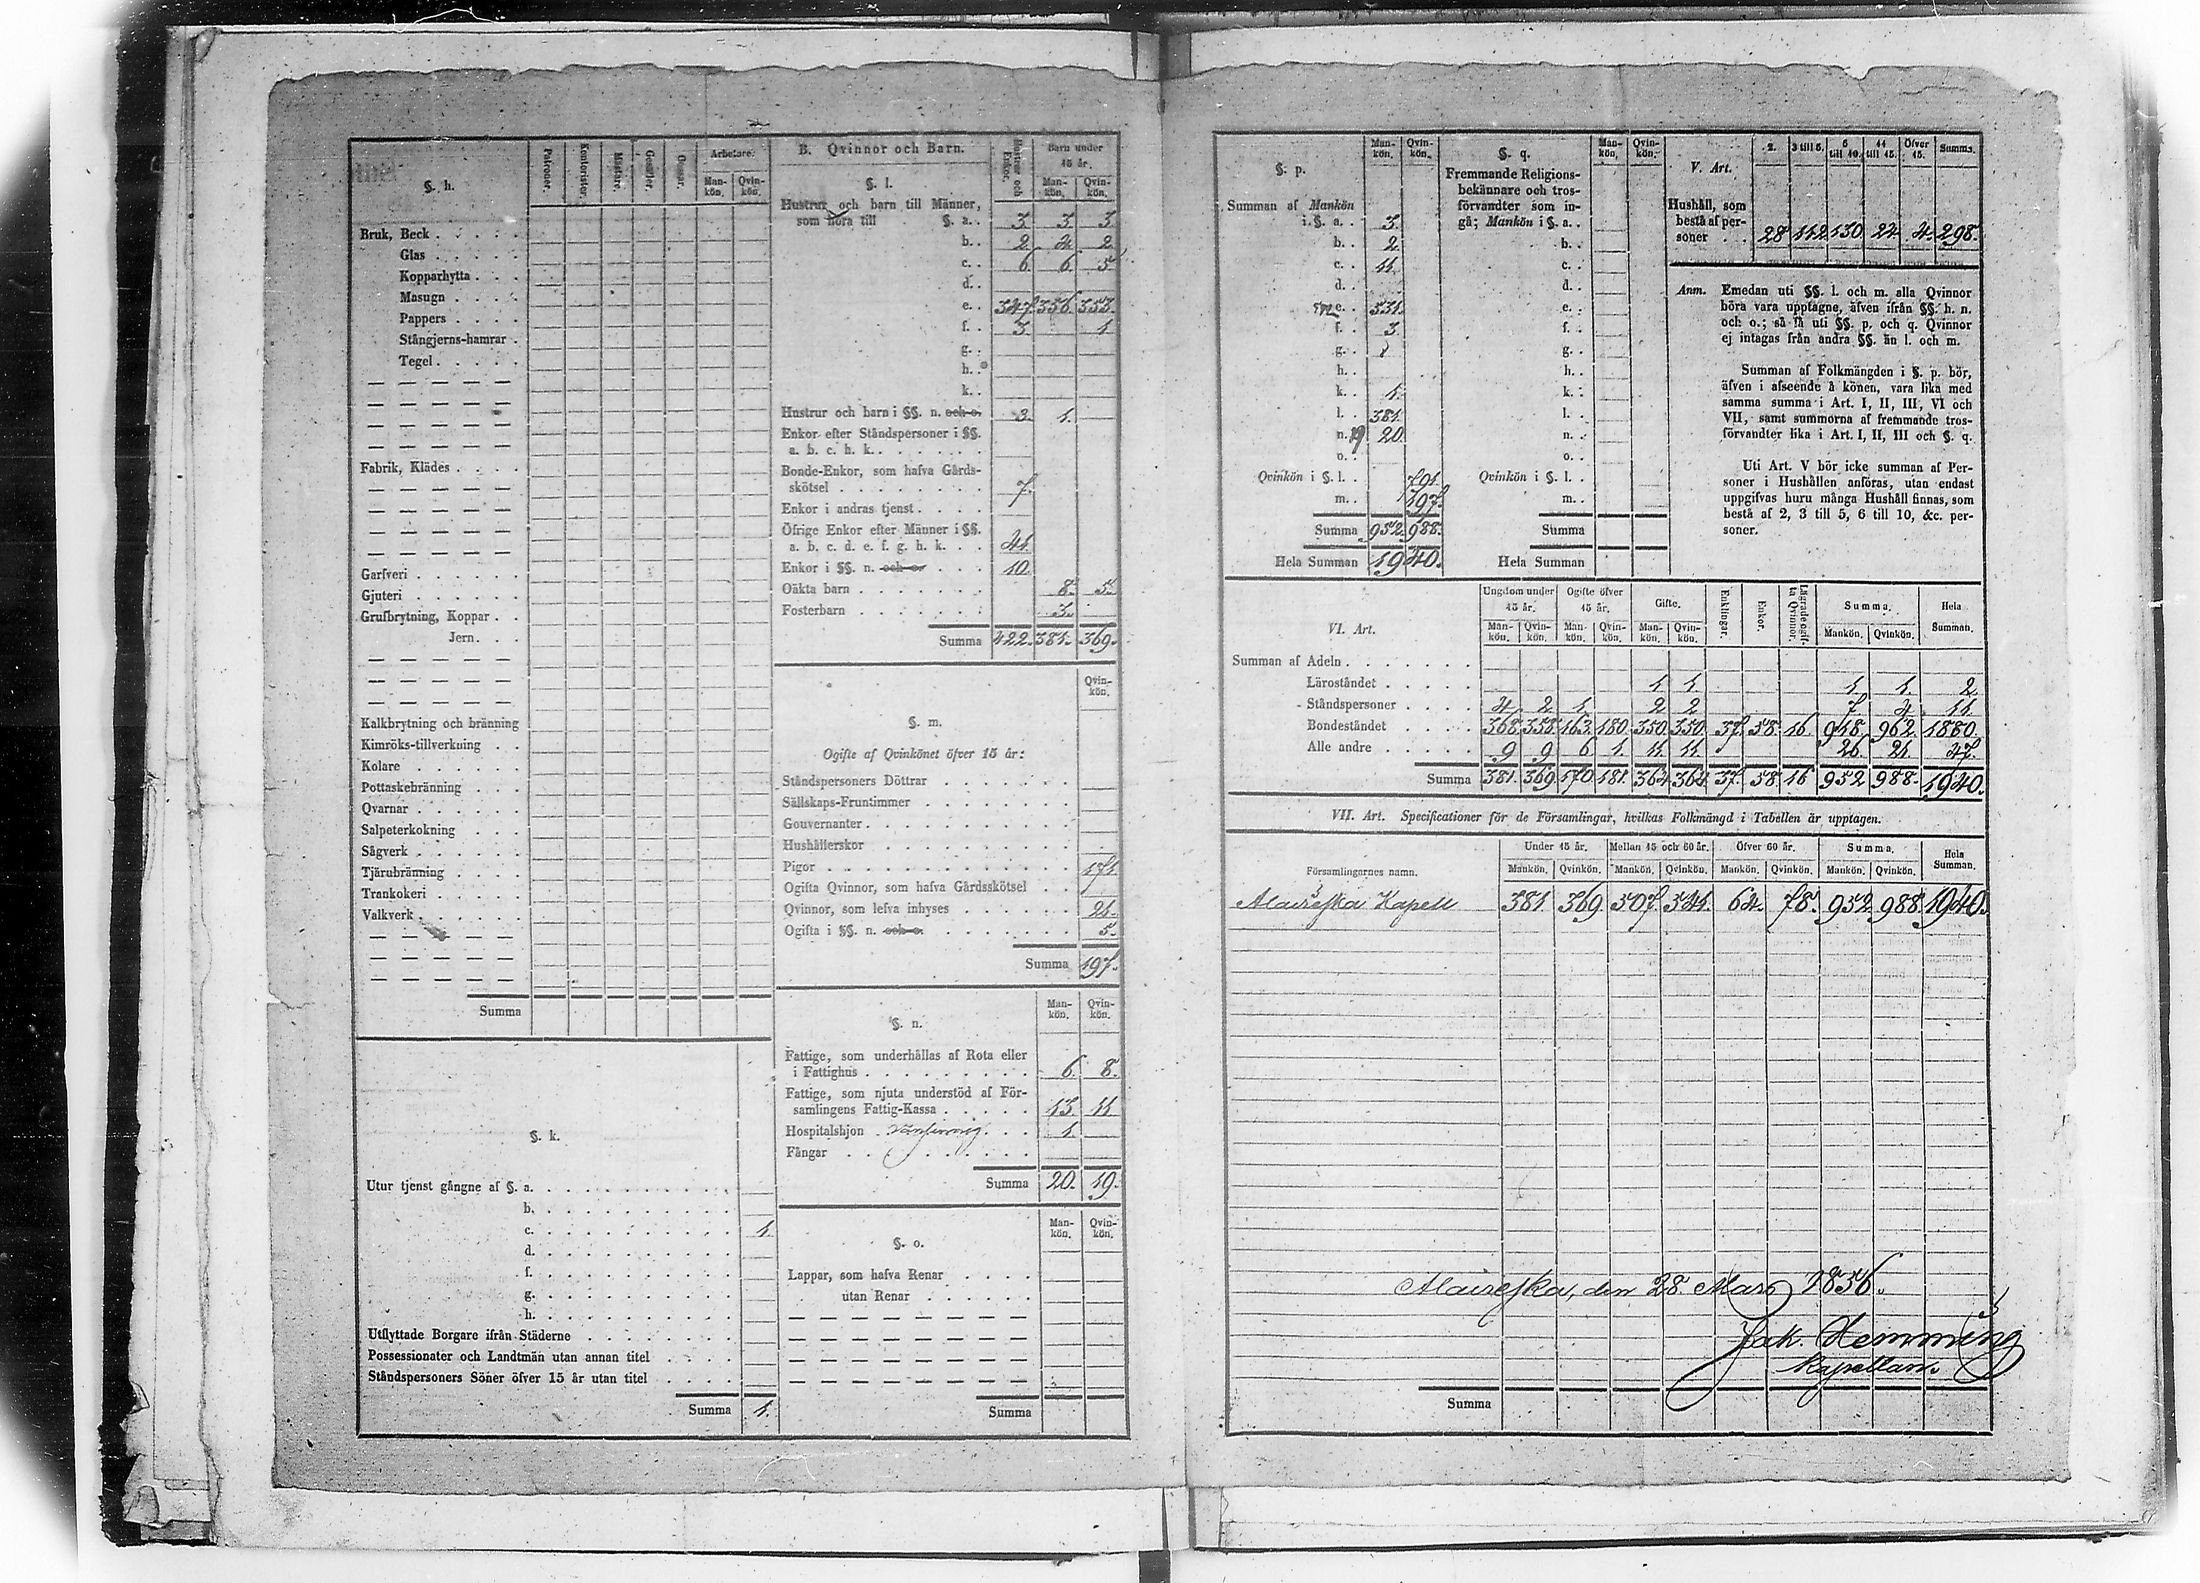 §. h.
Patroner. Kontorister. Mästare. Gesäller. Gossar. Arbetare. Mankön. Qvinkön.
Bruk, Beck
Glas
Kopparhytta
Masugn
Pappers
Stångjerns-hamrar
Tegel
Fabrik, Klädes
Garfveri
Gjuteri
Grufbrytning, Koppar
Jern
Kalkbrytning och bränning
Kimröks-tillverkning
Kolare
Pottaskebränning
Qvarnar
Salpeterkokning
Sågverk
Tjärubränning
Trankokeri
Valkverk
Summa
§. k.
Utur tjenst gångne af §. a.
b.
c. 1.
d.
f.
g.
h.
Utflyttade Borgare ifrån Städerne
Possessionater och Landtmän utan annan titel
Ståndspersoners Söner öfver 15 år utan titel
Summa 1.
B. Qvinnor och Barn.
Hustrur och Enkor. Barn under 15 år. Mankön. Qvinkön.
§. l.
Hustrur och barn till Männer,
som höra till §. a. 3. 3. 3.
b. 2. 4. 2.
c. 6. 6. 5.
d.
e. 347. 356. 353.
f. 3. 1
g.
h.
k.
Hustrur och barn i §§. n. och o. 3. 1.
Enkor efter Ståndspersoner i §§.
a. b. c. h. k.
Bonde-Enkor, som hafva Gårdsskötsel 7.
Enkor i andras tjenst
Öfrige Enkor efter Männer i §§.
a. b. c. d. e. f. g. h. k. 41.
Enkor i §§. n. och o. 10.
Oäkta barn 8. 5.
Fosterbarn 3.
Summa 422. 381. 369.
Qvinkön.
§. m.
Ogifte af Qvinkönet öfver 15 år:
Ståndspersoners Döttrar
Sällskaps-Fruntimmer
Gouvernanter
Hushållerskor
Pigor 171
Ogifta Qvinnor, som hafva Gårdsskötsel
Qvinnor, som lefva inhyses 21.
Ogifta i §§. n. och o. 5.
Summa 197.
Mankön. Qvinkön.
§. n.
Fattige, som underhållas af Rota eller
i Fattighus 6. 8.
Fattige, som njuta understöd af Församlingens Fattig-Kassa 13. 11
Hospitalshjon 1.
Fångar
Summa 20. 19.
Mankön. Qvinkön.
§. o.
Lappar, som hafva Renar
utan Renar
Summa
§. p. Mankön. Qvinkön.
Summan af Mankön
i §. a. 3.
b. 2.
c. 11.
d.
e. 531.
f. 3.
g.
h.
k. 1.
l. 381.
n. 19 20.
o.
Qvinkön i §. l. 791.
m. 197.
Summa 952. 988.
Hela Summan 1940.
§. q. Mankön. Qvinkön.
Fremmande Religionsbekännare och trosförvandter som ingå; Mankön i §. a.
b.
c.
d.
e.
f.
g.
h.
k.
l.
n.
o.
Qvinkön i §. l.
m.
Summa
Hela Summan
V. Art. 2. 3 till 5. 6 till 10. 11 till 15. Öfver 15. Summa.
Hushåll, som
bestå af personer 28 112 130 24 4. 298.
Anm. Emedan uti §§. l. och m. alla Qvinnor
böra vara upptagne, äfven ifrån §§. h. n.
och o.; så få uti §§. p. och q. Qvinnor
ej intagas från andra §§. än l. och m.
Summan af Folkmängden i §. p. bör,
äfven i afseende å könen, vara lika med
samma summa i Art. I, II, III, VI och
VII, samt summorna af fremmande trosförvandter lika i Art. I, II, III och §. q.
Uti Art. V bör icke summan af Personer i Hushållen anföras, utan endast
uppgifvas huru många Hushåll finnas, som
bestå af 2, 3 till 5, 6 till 10, &c. personer.
VI. Art.
Ungdom under 15 år. Ogifte öfver 15 år. Gifte. Enklingar. Enkor. Lägrade ogifta Qvinnor. Summa. Hela Summan.
Mankön. Qvinkön. Mankön. Qvinkön. Mankön. Qvinkön. Mankön. Qvinkön.
Summan af Adeln
Läroståndet 1 1. 1 1. 2.
Ståndspersoner 4. 2 1. 2 2 7 4. 11.
Bondeståndet 368. 358. 163. 180. 350. 350. 37. 58. 16. 918. 962. 1880.
Alle andre 9 9 6 1. 11 11. 26. 21. 47.
Summa 381. 369 170. 181. 364 364 37. 58. 16 952 988. 1940.
VII. Art. Specificationer för de Församlingar, hvilkas Folkmängd i Tabellen är upptagen.
Församlingarnes namn.
Under 15 år. Mellan 15 och 60 år. Öfver 60 år. Summa. Hela Summan.
Mankön. Qvinkön. Mankön. Qvinkön. Mankön. Qvinkön. Mankön. Qvinkön.
Alaveteli Kapell 381 369 507. 541. 64. 78. 952 988. 1940.
den 28. Mars 1856.
Jak. Hemming
Kapellan.
Summa